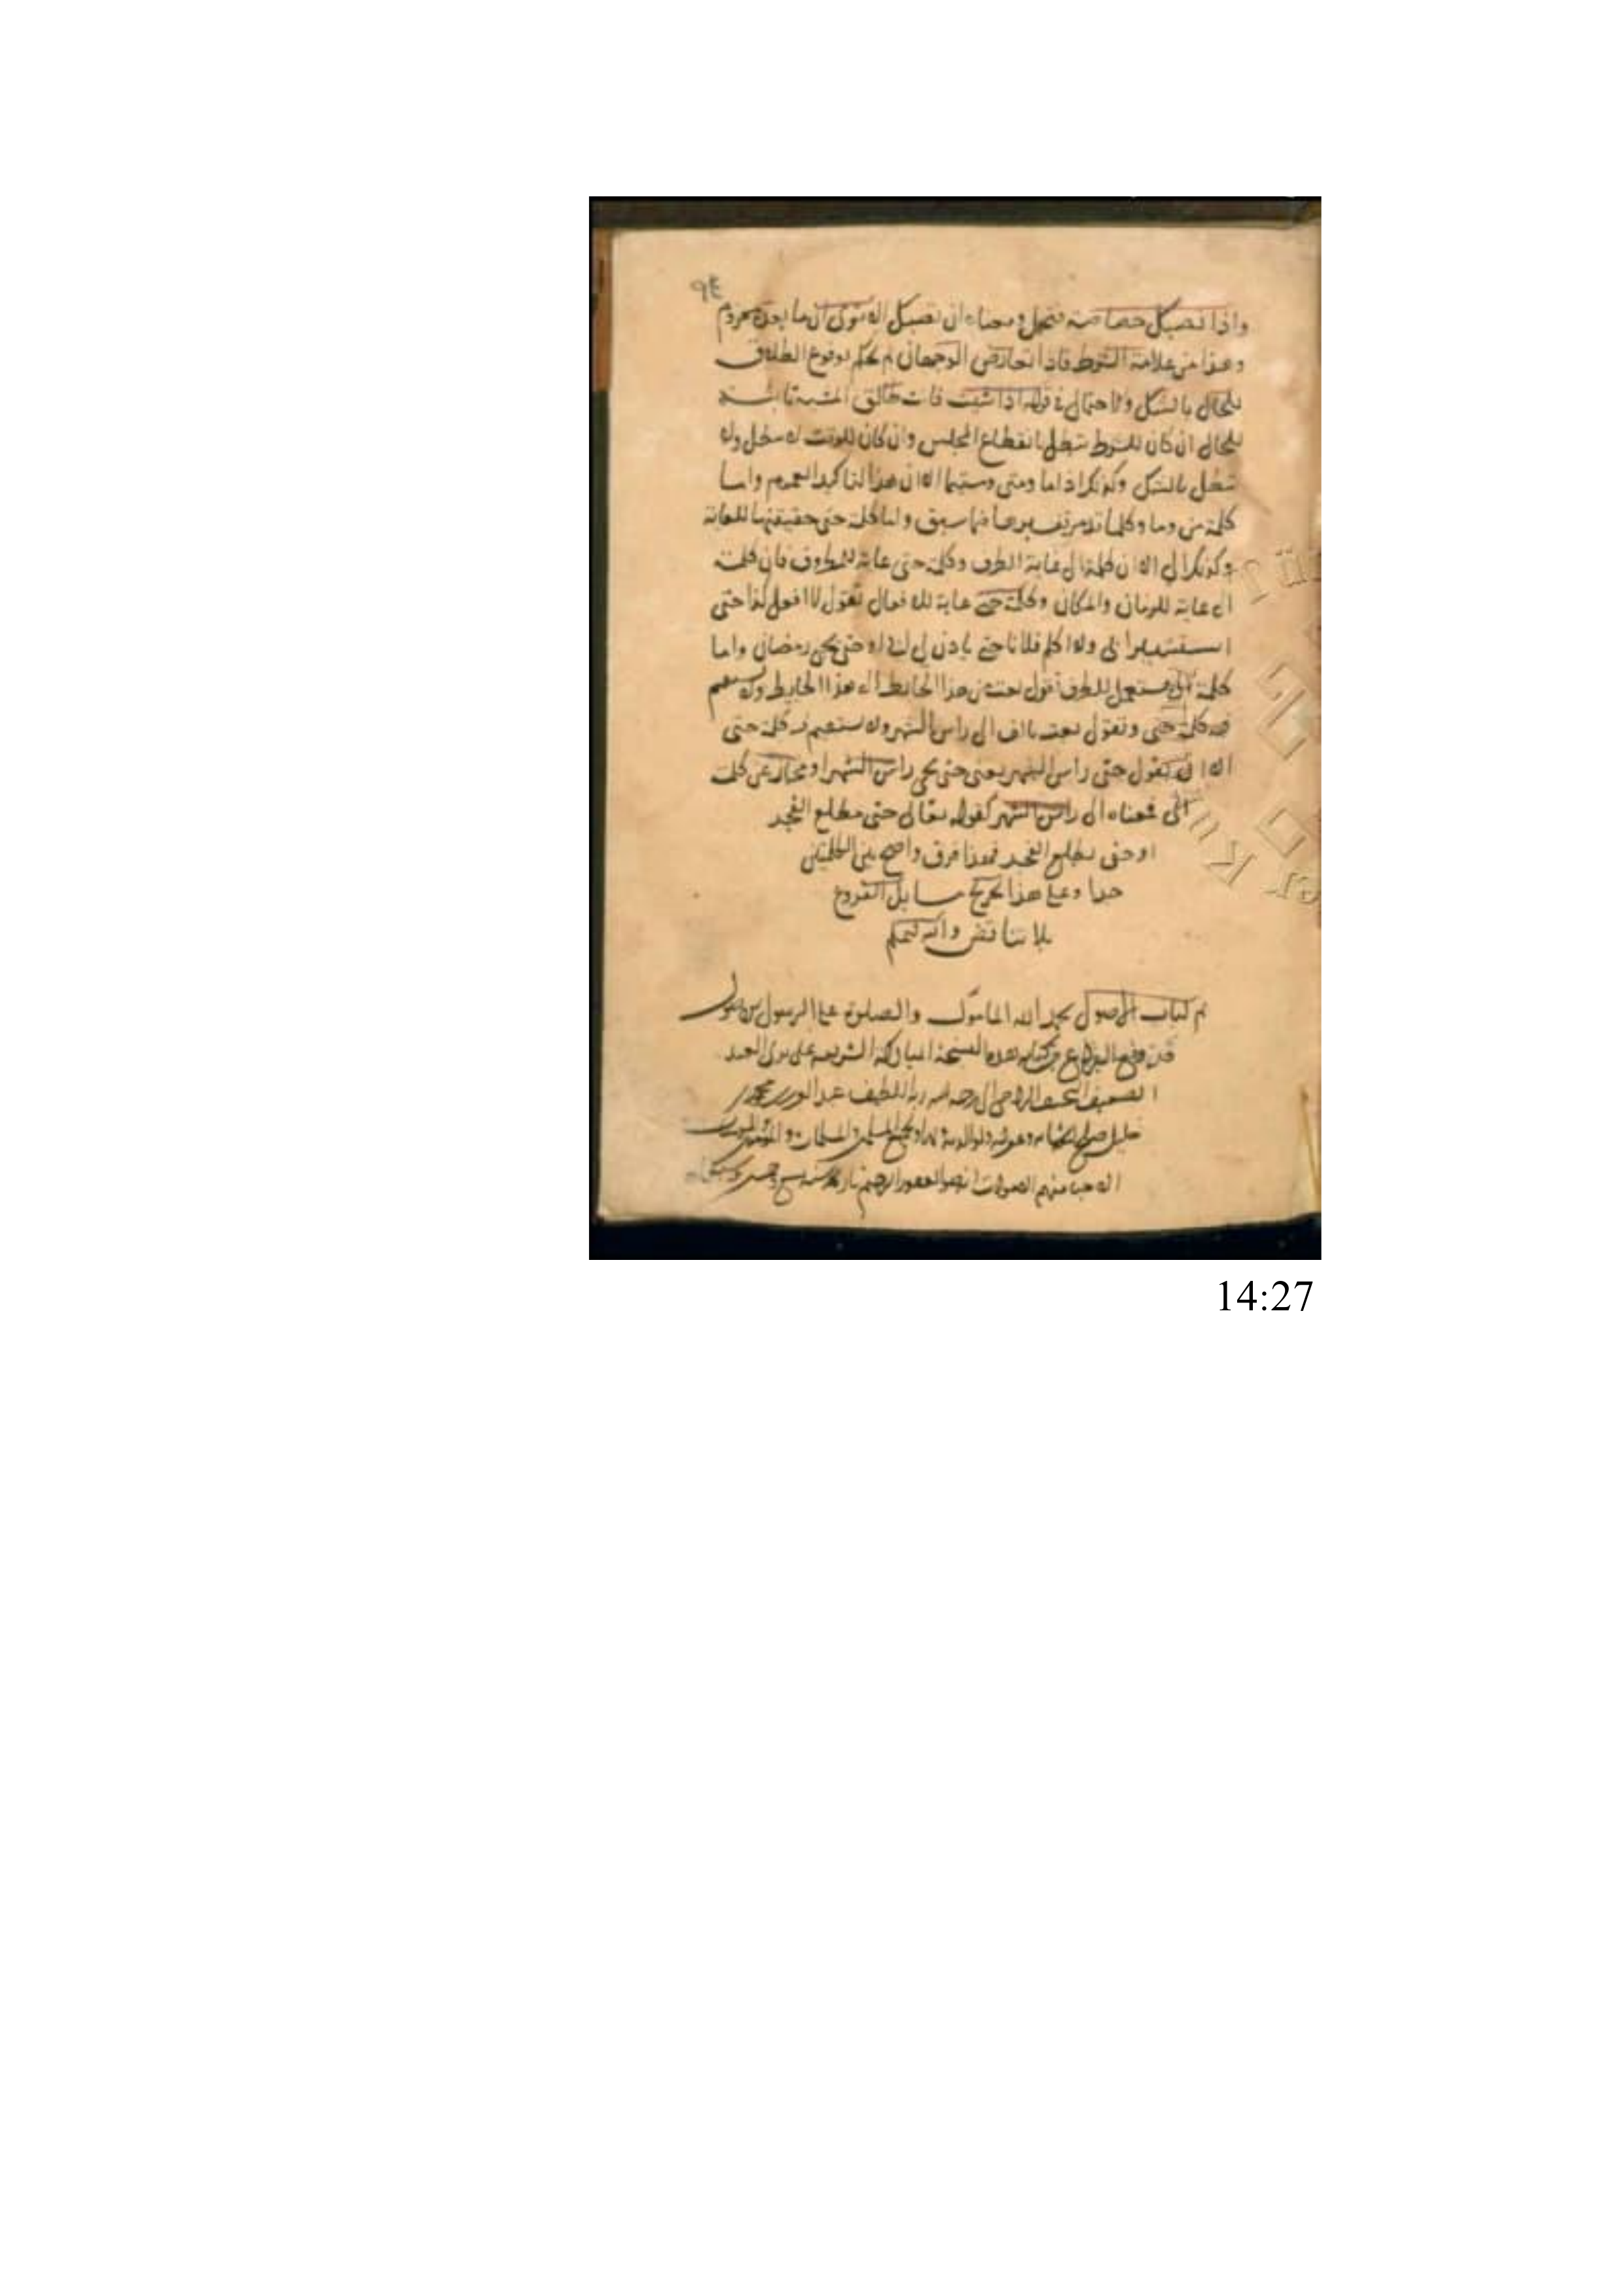 ٩٤
واذا تصبك خصاصة فتجمل ومعناه ان تصبك الا ترى ان ما بعده مجزوم
وهذا من علامة الشرط فاذا تعارض الوجهان لم يحكم بوقوع الطلاق
للحال بالشك والاحتمال في قوله اذا شئت فانت طالق المشية ثابتة
للحال ان كان للشرط تبطل بانقطاع المجلس وان كان للوقت لا تبطل ولا
تبطل بالشك وكذلك اذا ما ومتى ومتيما الا ان هذا لتاكيد العموم واما
كلمة من وما وكلما قد مر فيما سبق واما كلمة حتى حقيقتها للغاية
وكذلك الى الا ان كلمة الى غاية الظرف وكلمة حتى غاية فان كلمة
الى غاية للزمان والمكان وكلمة حتى غاية للافعال تقول لا افعل كذا حتى
استشير ابي ولا اكلم فلانا حتى ياذن لي او حتى يجي رمضان واما
كلمة الى يستعمل للظرف تقول بعت من هذا الحائط الى هذا الحايط ولا يستقيم
فيه كلمة حتى وتقول بعت بالف الى راس الشهر ولا يستقيم فيه كلمة حتى
الا ان تقول حتى راس الشهر يعني حتى يجي راس الشهر او مجاز عن كلمة
الى فمعناه الى راس الشهر كقوله تعالى حتى مطلع الفجر
او حتى يطلع الفجر فهذا فرق واضح بين الكلمتين
جدا وعلى هذا يخرج مسايل الفروع
بلا تناقض والله
تم كتاب الاصول بحمد الله المامول والصلوة على الرسول
قد وقع الفراغ من كتابة هذه النسخة المباركة الشريفة على يدي العبد
الضعيف النحيف الراجي الى رحمة ربه اللطيف
خليل ولوالديه ولجميع المسلمين والمسلمات والمؤمنين
الاحيا منهم والاموات انه هو الغفور الرحيم
14:27